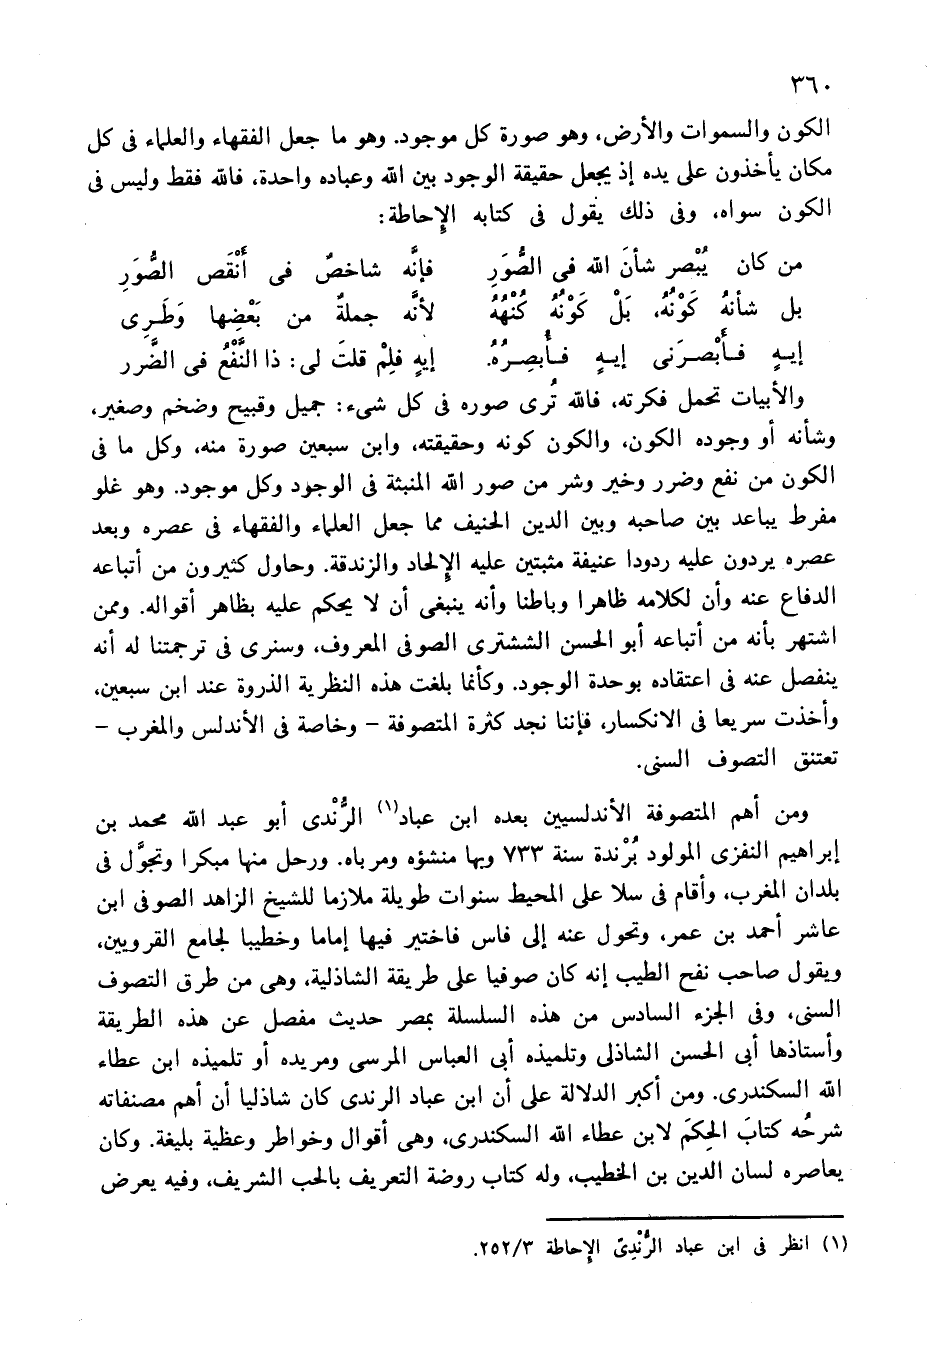 ٣٦٠
الكون والسموات والأرض، وهو صورة كل موجود. وهو ما جعل الفقهاء والعلماء فى كل
مكان يأخذون على يده إذ يجعل حقيقة الوجود بين الله وعباده واحدة، فالله فقط وليس فى
الكون سواه، وفى ذلك يقول فى كتابه الإحاطة:
من كان يُبْصر شأنَ الله فى الصُّوَرِ فإنَّه شاخصٌ فى أَنْقَص الصُّوَرِ
بل شأنهُ كَوْنُهُ، بَلْ كَوْنُهُ كُنْهُهُ لأنَّه جملةٌ من بَعْضِها وَطَرِى
إيـهٍ فـأَبْصرَنى إيـهٍ فـأبصِرُهُ. إيهٍ فلِمْ قلتَ لى: ذا النَّفْعُ فى الضَّرر
والأبيات تحمل فكرته، فالله تُرى صوره فى كل شىء: جميل وقبيح وضخم وصغير،
وشأنه أو وجوده الكون، والكون كونه وحقيقته، وابن سبعين صورة منه، وكل ما فى
الكون من نفع وضرر وخير وشر من صور الله المنبثة فى الوجود وكل موجود. وهو غلو
مفرط يباعد بين صاحبه وبين الدين الحنيف مما جعل العلماء والفقهاء فى عصره وبعد
عصره يردون عليه ردودا عنيفة مثبتين عليه الإلحاد والزندقة. وحاول كثيرون من أتباعه
الدفاع عنه وأن لكلامه ظاهرا وباطنا وأنه ينبغى أن لا يحكم عليه بظاهر أقواله. وممن
اشتهر بأنه من أتباعه أبو الحسن الششترى الصوفى المعروف، وسنرى فى ترجمتنا له أنه
ينفصل عنه فى اعتقاده بوحدة الوجود. وكأنما بلغت هذه النظرية الذروة عند ابن سبعين،
وأخذت سريعا فى الانكسار، فإننا نجد كثرة المتصوفة – وخاصة فى الأندلس والمغرب –
تعتنق التصوف السنى.
ومن أهم المتصوفة الأندلسيين بعده ابن عباد(١) الرُّنْدى أبو عبد الله محمد بن
إبراهيم النفزى المولود بُرْندة سنة ٧٣٣ وبها منشؤه ومرباه. ورحل منها مبكرا وتجوَّل فى
بلدان المغرب، وأقام فى سلا على المحيط سنوات طويلة ملازما للشيخ الزاهد الصوفى ابن
عاشر أحمد بن عمر، وتحول عنه إلى فاس فاختير فيها إماما وخطيبا لجامع القرويين،
ويقول صاحب نفح الطيب إنه كان صوفيا على طريقة الشاذلية، وهى من طرق التصوف
السنى، وفى الجزء السادس من هذه السلسلة بمصر حديث مفصل عن هذه الطريقة
وأستاذها أبى الحسن الشاذلى وتلميذه أبى العباس المرسى ومريده أو تلميذه ابن عطاء
الله السكندرى. ومن أكبر الدلالة على أن ابن عباد الرندى كان شاذليا أن أهم مصنفاته
شرحُه كتابَ الحِكَم لابن عطاء الله السكندرى، وهى أقوال وخواطر وعظية بليغة. وكان
يعاصره لسان الدين بن الخطيب، وله كتاب روضة التعريف بالحب الشريف، وفيه يعرض
(١) انظر فى ابن عباد الرُّنْدِىّ الإحاطة ٢٥٢/٣.